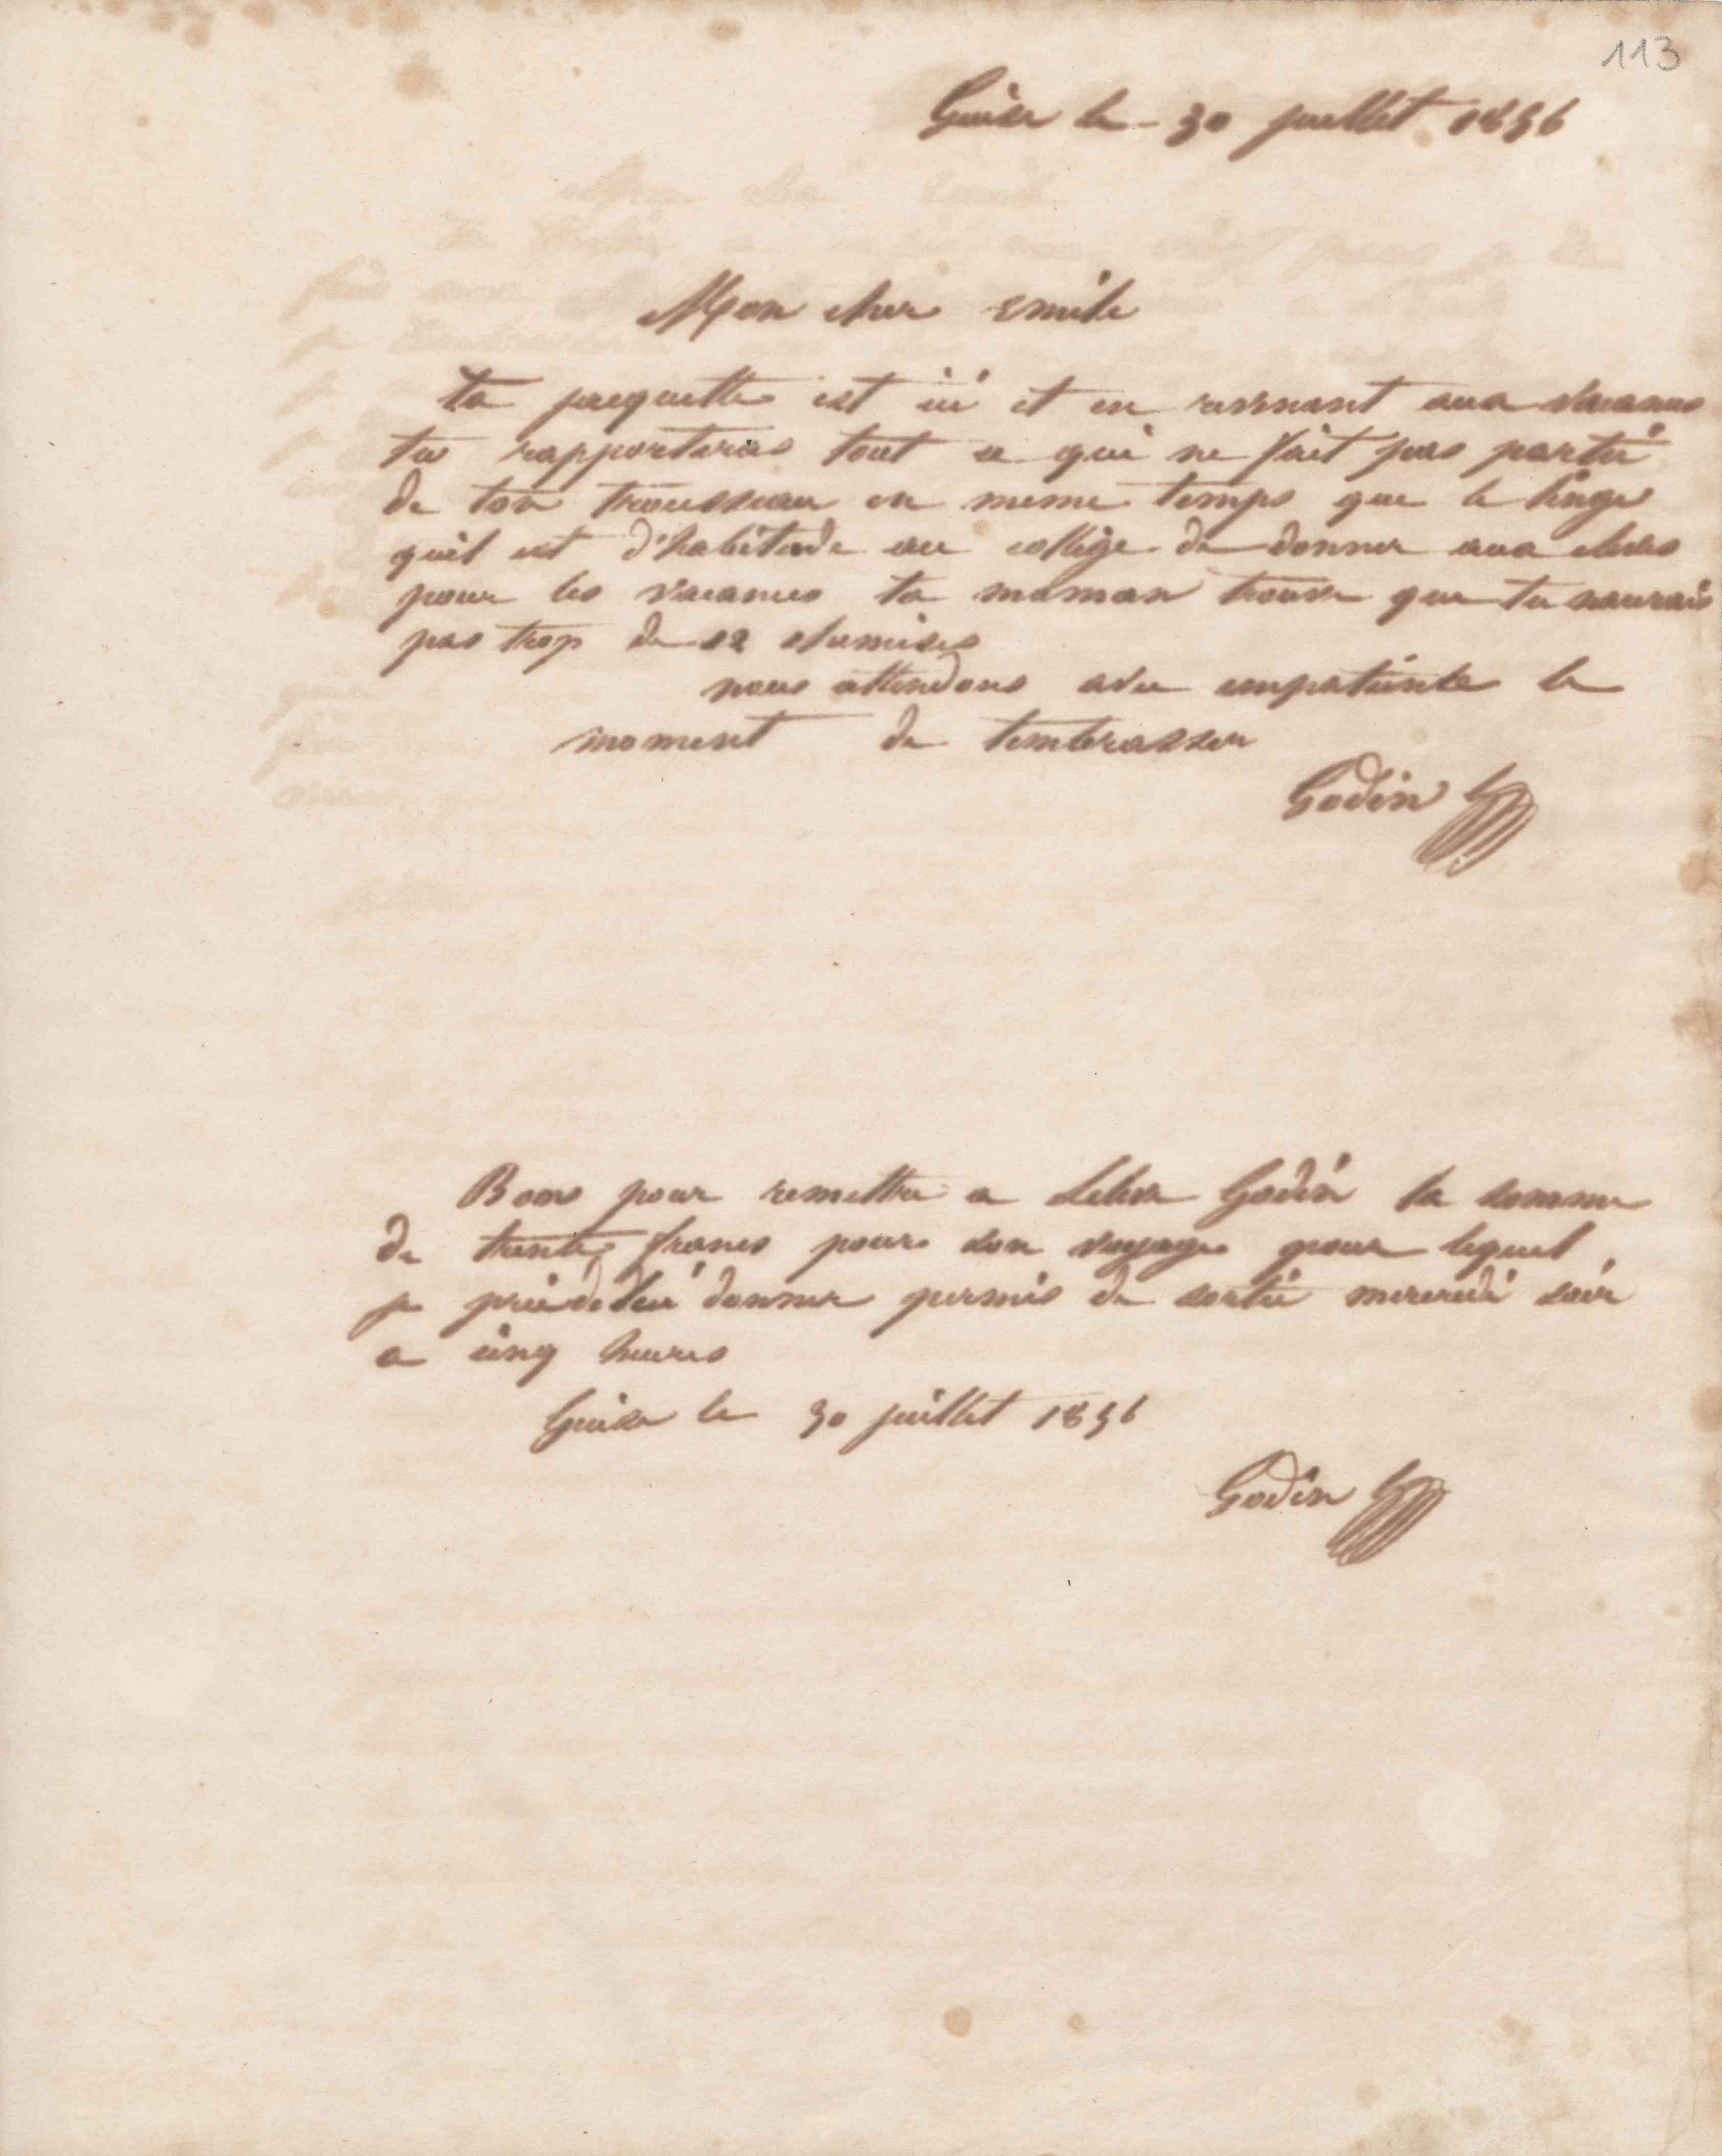 113
Guise le 30 juillet 1856
Mon cher Emile
ta jaquette est ici et en revenant aux vacances
tu rapporteras tout ce qui ne fait pas partie
de ton trousseau en meme temps que le linge
quil est d'habitude au collège de donner aux eleves
pour les vacances ta maman trouve que tu naurais
pas trop de 12 chemises
nous attendons avec empatience le
moment de tembrasser
Godin
Bons pour remettre a Godin la somme
de trente francs pour son voyage pour lequel
je prie de lui donner permis de sortie mercredi soir
a cinq heures
Guise le 30 juillet 1856
Godin